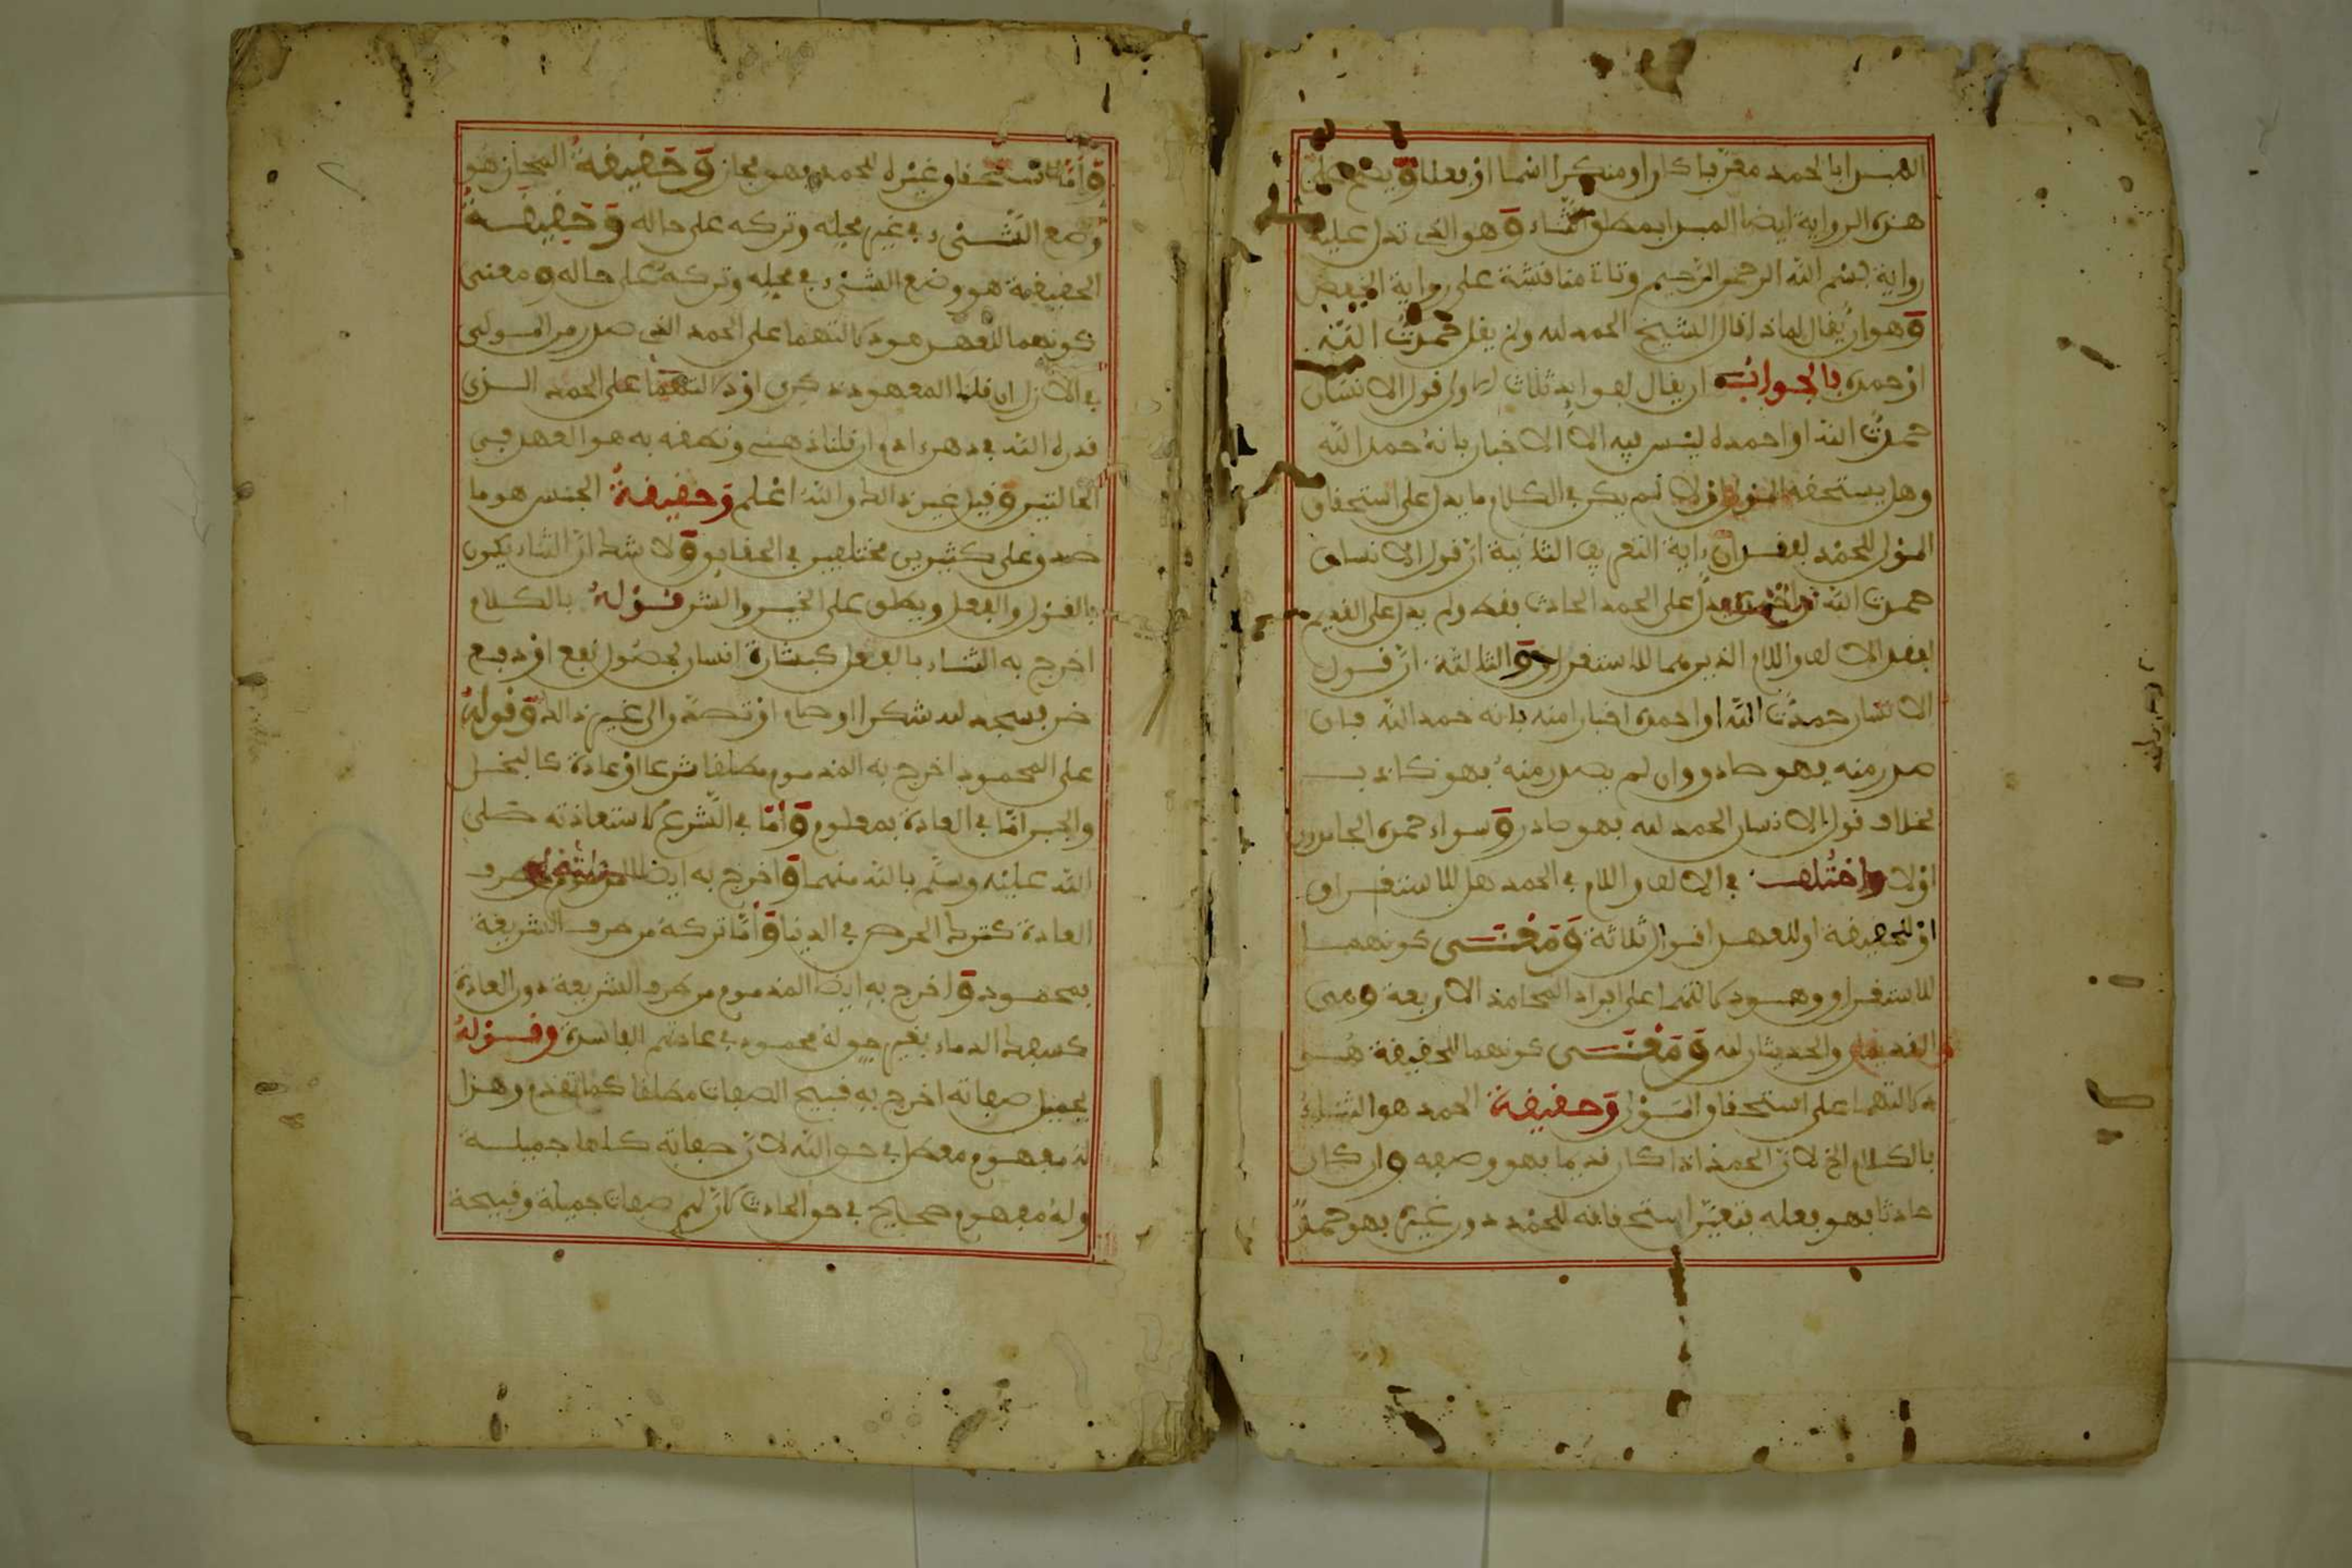 هذه الرواية ايضا المبدا بمطلق الثناء وهو الذي تدل عليه
رواية بسم الله الرحمن الرحيم وتاتي مناقشة على رواية الخفض
وهو ان يقال لماذا قال الشيخ الحمد لله ولم يقل حمدت الله
او احمده فالجواب ان يقال لفوايد ثلاث الاولى قول الانسان
حمدت الله او احمده ليس فيه الا الاخبار بانه حمد الله
وهل يستحقه المولى او لا لم يكن في الكلام ما يدل على استحقاق
المولى للحمد لفقدان اية التعريف الثانية ان قول الانسان
حمدت الله يدل على الحمد الحادث فقط ولم يدل على القديم
لفقد الالف واللام الذين هما للاستغراق والثالثة ان قول
الانسان حمدت الله او احمده اخبار منه بانه حمد الله فان
صدر منه فهو صادق وان لم يصدر منه فهو كاذب
بخلاف قول الانسان الحمد لله فهو صادق سواء حمده الحامدون
او لا واختلف في الالف واللام في الحمد هل للاستغراق
او للحقيقة او للعهد اقوال ثلاثة ومعنى كونهما
للاستغراق وهو دلالتهما على افراد المحامد الاربعة وهي
القديمان والحديثان لله ومعنى كونهما للحقيقة هو
دلالتهما على استحقاق المولى وحقيقة الحمد هو الثناء
بالكلام الخ لان الحمد اذا كان قديما فهو وصفه وان كان
حادثا فهو فعله فتعين استحقاقه للحمد دون غيره فهو حمد
واما استحقاق غيره للحمد فهو مجاز وحقيقة المجاز هو
وضع الشيء في غير محله وتركه على حاله وحقيقة
الحقيقة هو وضع الشيء في محله وتركه على حاله ومعنى
كونهما للعهد هو دلالتهما على الحمد الذي صدر من المولى
في الازل ان قلنا المعهود ذكري او دلالتهما على الحمد الذي
قدره الله في دهر ادم ان قلنا ذهني ونطقه به هو العهد في
الحالتين وقيل غير ذالك والله اعلم وحقيقة الجنس هو ما
صدق على كثيرين مختلفين في الحقايق ولا شك ان الثناء يكون
بالقول والفعل ويطلق على الخير والشر قوله بالكلام
اخرج به الثناء بالفعل كبشارة انسان بحصول نفع او دفع
ضر فسجد لله شكرا او صام او تصدق والى غير ذالك وقوله
على المحمود اخرج به المذموم مطلقا شرعا او عادة كالبخل
والجبن اما في العادة فمعلوم واما في الشرع لاستعاذته صلى
الله عليه وسلم بالله منهما واخرج به ايضا
العادة كترك الحرص في الدنيا واما تركه من طرف الشريعة
فمحمود واخرج به ايضا المذموم من طرف الشريعة دون العادة
كسفك الدماء بغير حق لانه محمود في عادتهم الفاسدة وقوله
بجميل صفاته اخرج به قبيح الصفات مطلقا كما تقدم وهذا
له مفهوم معطل في حق الله لان صفاته كلها جميلة
وله مفهوم صحيح في حق الحادث لان لهم صفات جميلة وقبيحة